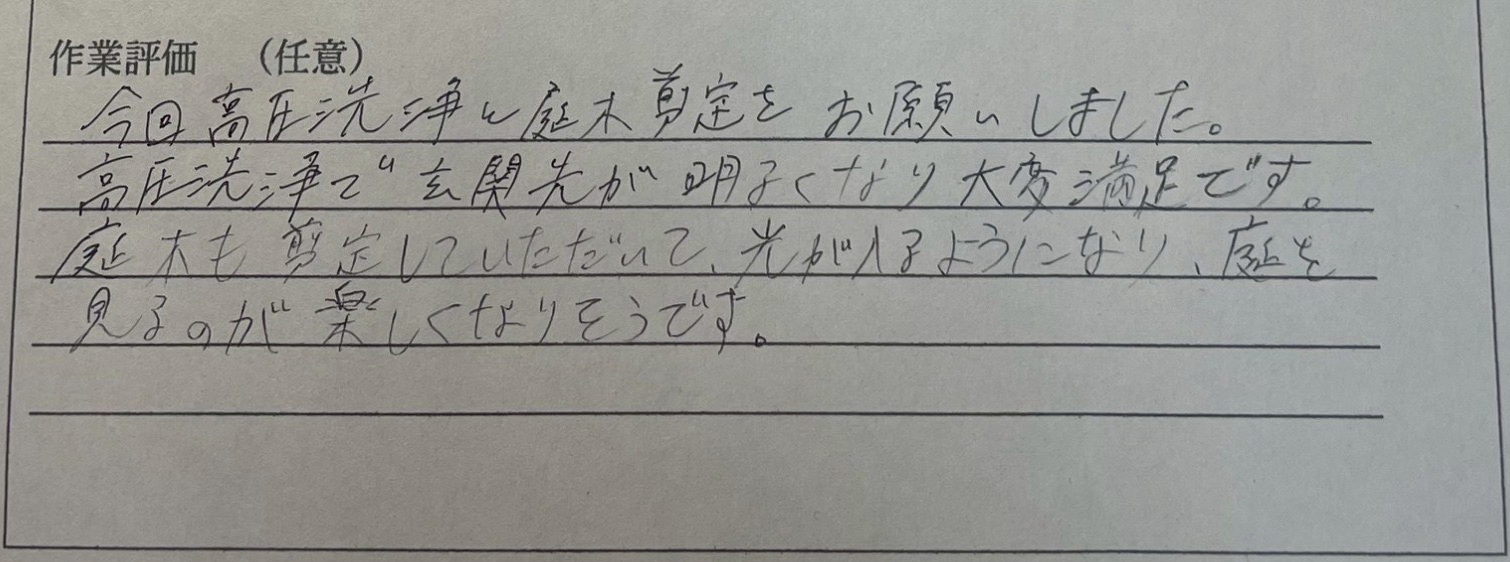 作業評価　（任意）
今回高圧洗浄と庭木剪定をお願いしました。
高圧洗浄で玄関先が明るくなり大変満足です。
庭木も剪定していただいて、光が入るようになり、庭を
見るのが楽しくなりそうです。